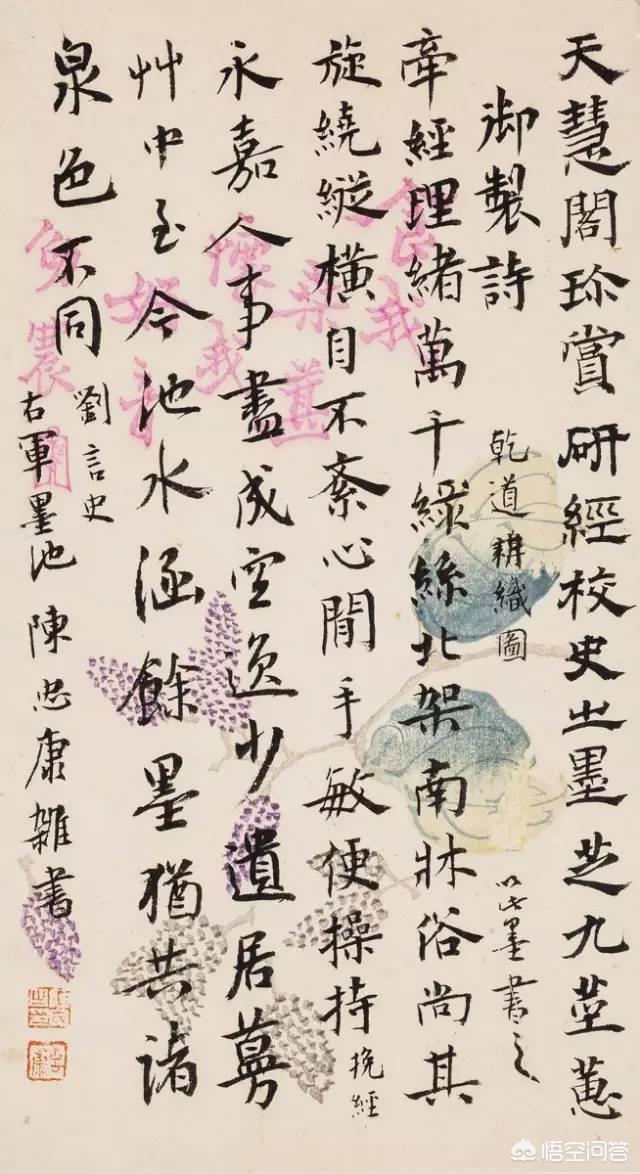 天慧閣珎賞研經校史之墨芝九莖蕙
御製詩
乾道耕織圖
以此墨書之
牽經理緒萬千綠絲北架南牀俗尚其
旋繞縱橫目不紊心閒手敏便操持
挽經
永嘉人事盡成空逸少遺居蔓
艸中至今池水涵餘墨猶共諸
泉色不同
劉言史
右軍墨池 陳忠康雜書
食我
桑葚
懷我
好音
悟空问答